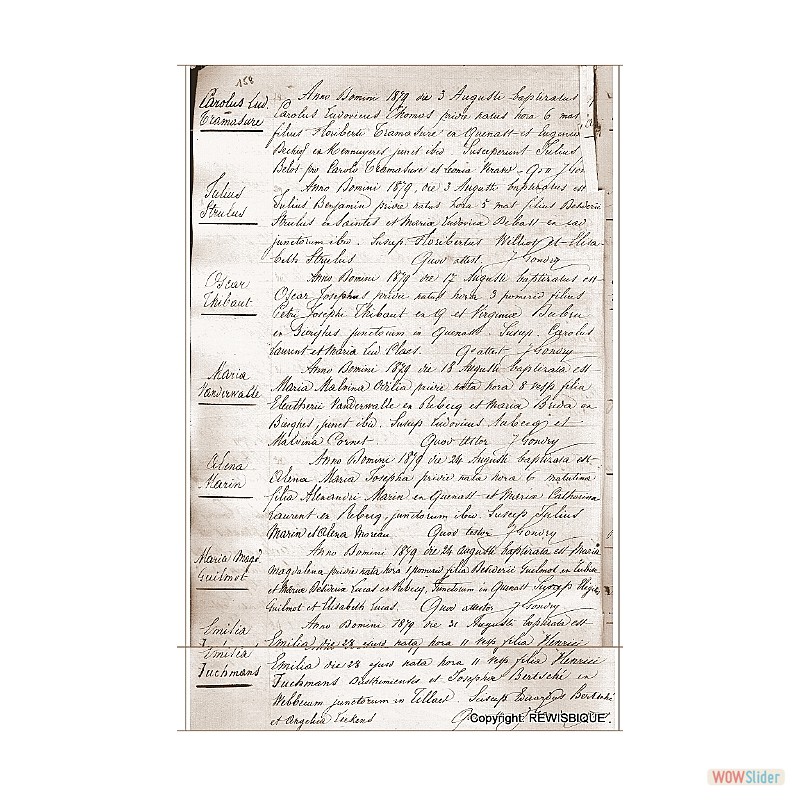 158
Carolus Lud.
Tramasure
Anno Domini 1879 die 3 Augusti baptizatus
Carolus Ludovicus Thomas pridie natus hora 6 mat
filius Floriberti Tramasure ex Quenast et Eugenia
ex Hennuyeres junct ibid Susceperunt Julius
Belot pro Carolo Tramasure et Leonia
Julius
Strulus
Anno Domini 1879, die 3 Augusti baptizatus est
Julius Benjamin pridie natus hora 5 mat filius Desiderii
Strulus ex Saintes et Maria Ludovica ex eod
junctorum ibid. Suscep. Floribertus Williot et Elisa
beth Strulus Quod attest. J Gondry
Oscar
Thibaut
Anno Domini 1879 die 17 Augusti baptizatus est
Oscar Josephus pridie natus hora 3 pomerid filius
Petri Josephi Thibaut ex Q et Virginia Dubru
ex junctorum in Quenast. Suscep. Carolus
Laurent et Maria Lud Claes. Q attest J Gondry
Maria
Vanderwalle
Anno Domini 1879 die 18 Augusti baptizata est
Maria Malvina Odilia pridie nata hora 8 vesp filia
Eleutherii Vanderwalle ex Rebecq et Maria Brida ex
Burghes, junct ibid. Suscep Ludovicus et
Malvina Cornet Quod testor J Gondry
Alena
Marin
Anno Domini 1879 die 24 Augusti baptizata est
Alena Maria Josepha pridie nata hora 6 matutina
filia Alexandri Marin ex Quenast et Maria Catharina
Laurent ex Rebecq, junctorum ibid. Suscep Julius
Marin et Alena Moreau. Quod testor J Gondry
Maria Magd.
Guilmot
Anno Domini 1879 die 24 augusti baptizata est Maria
Magdalena pridie nata hora 1 pomerid filia Desiderii Guilmot ex
et Maria Desideria Lucas ex Rebecq, junctorum in Quenast Suscep
Guilmot et Elisabeth Lucas. Quod attestor J Gondry
Emilia
Anno Domini 1879 die 31 Augusti baptizata est
Emilia die 28 ejusd nata hora 11 vesp filia Henrici
Emilia
Tuchmans
Emilia die 28 ejusd nata hora 11 vesp filia Henrici
Tuchmans et Josepha Bertschi ex
Webbecum junctorum in Suscep Eduardus Bertschi
et Angelina
Copyright: REWISBIQUE.
WOWSlider